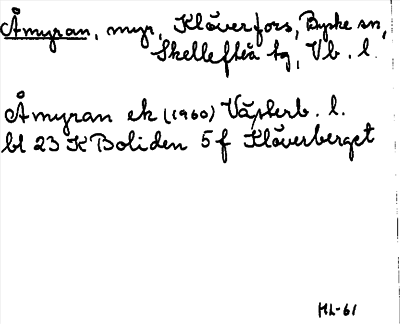 Åmyran, myr, Klöverfors, Byske sn,
Skellefteå tg, Vb. l.
Åmyran ek (1960) Västerb. l.
bl 23 K Boliden 5 f Klöverberget
HL-61